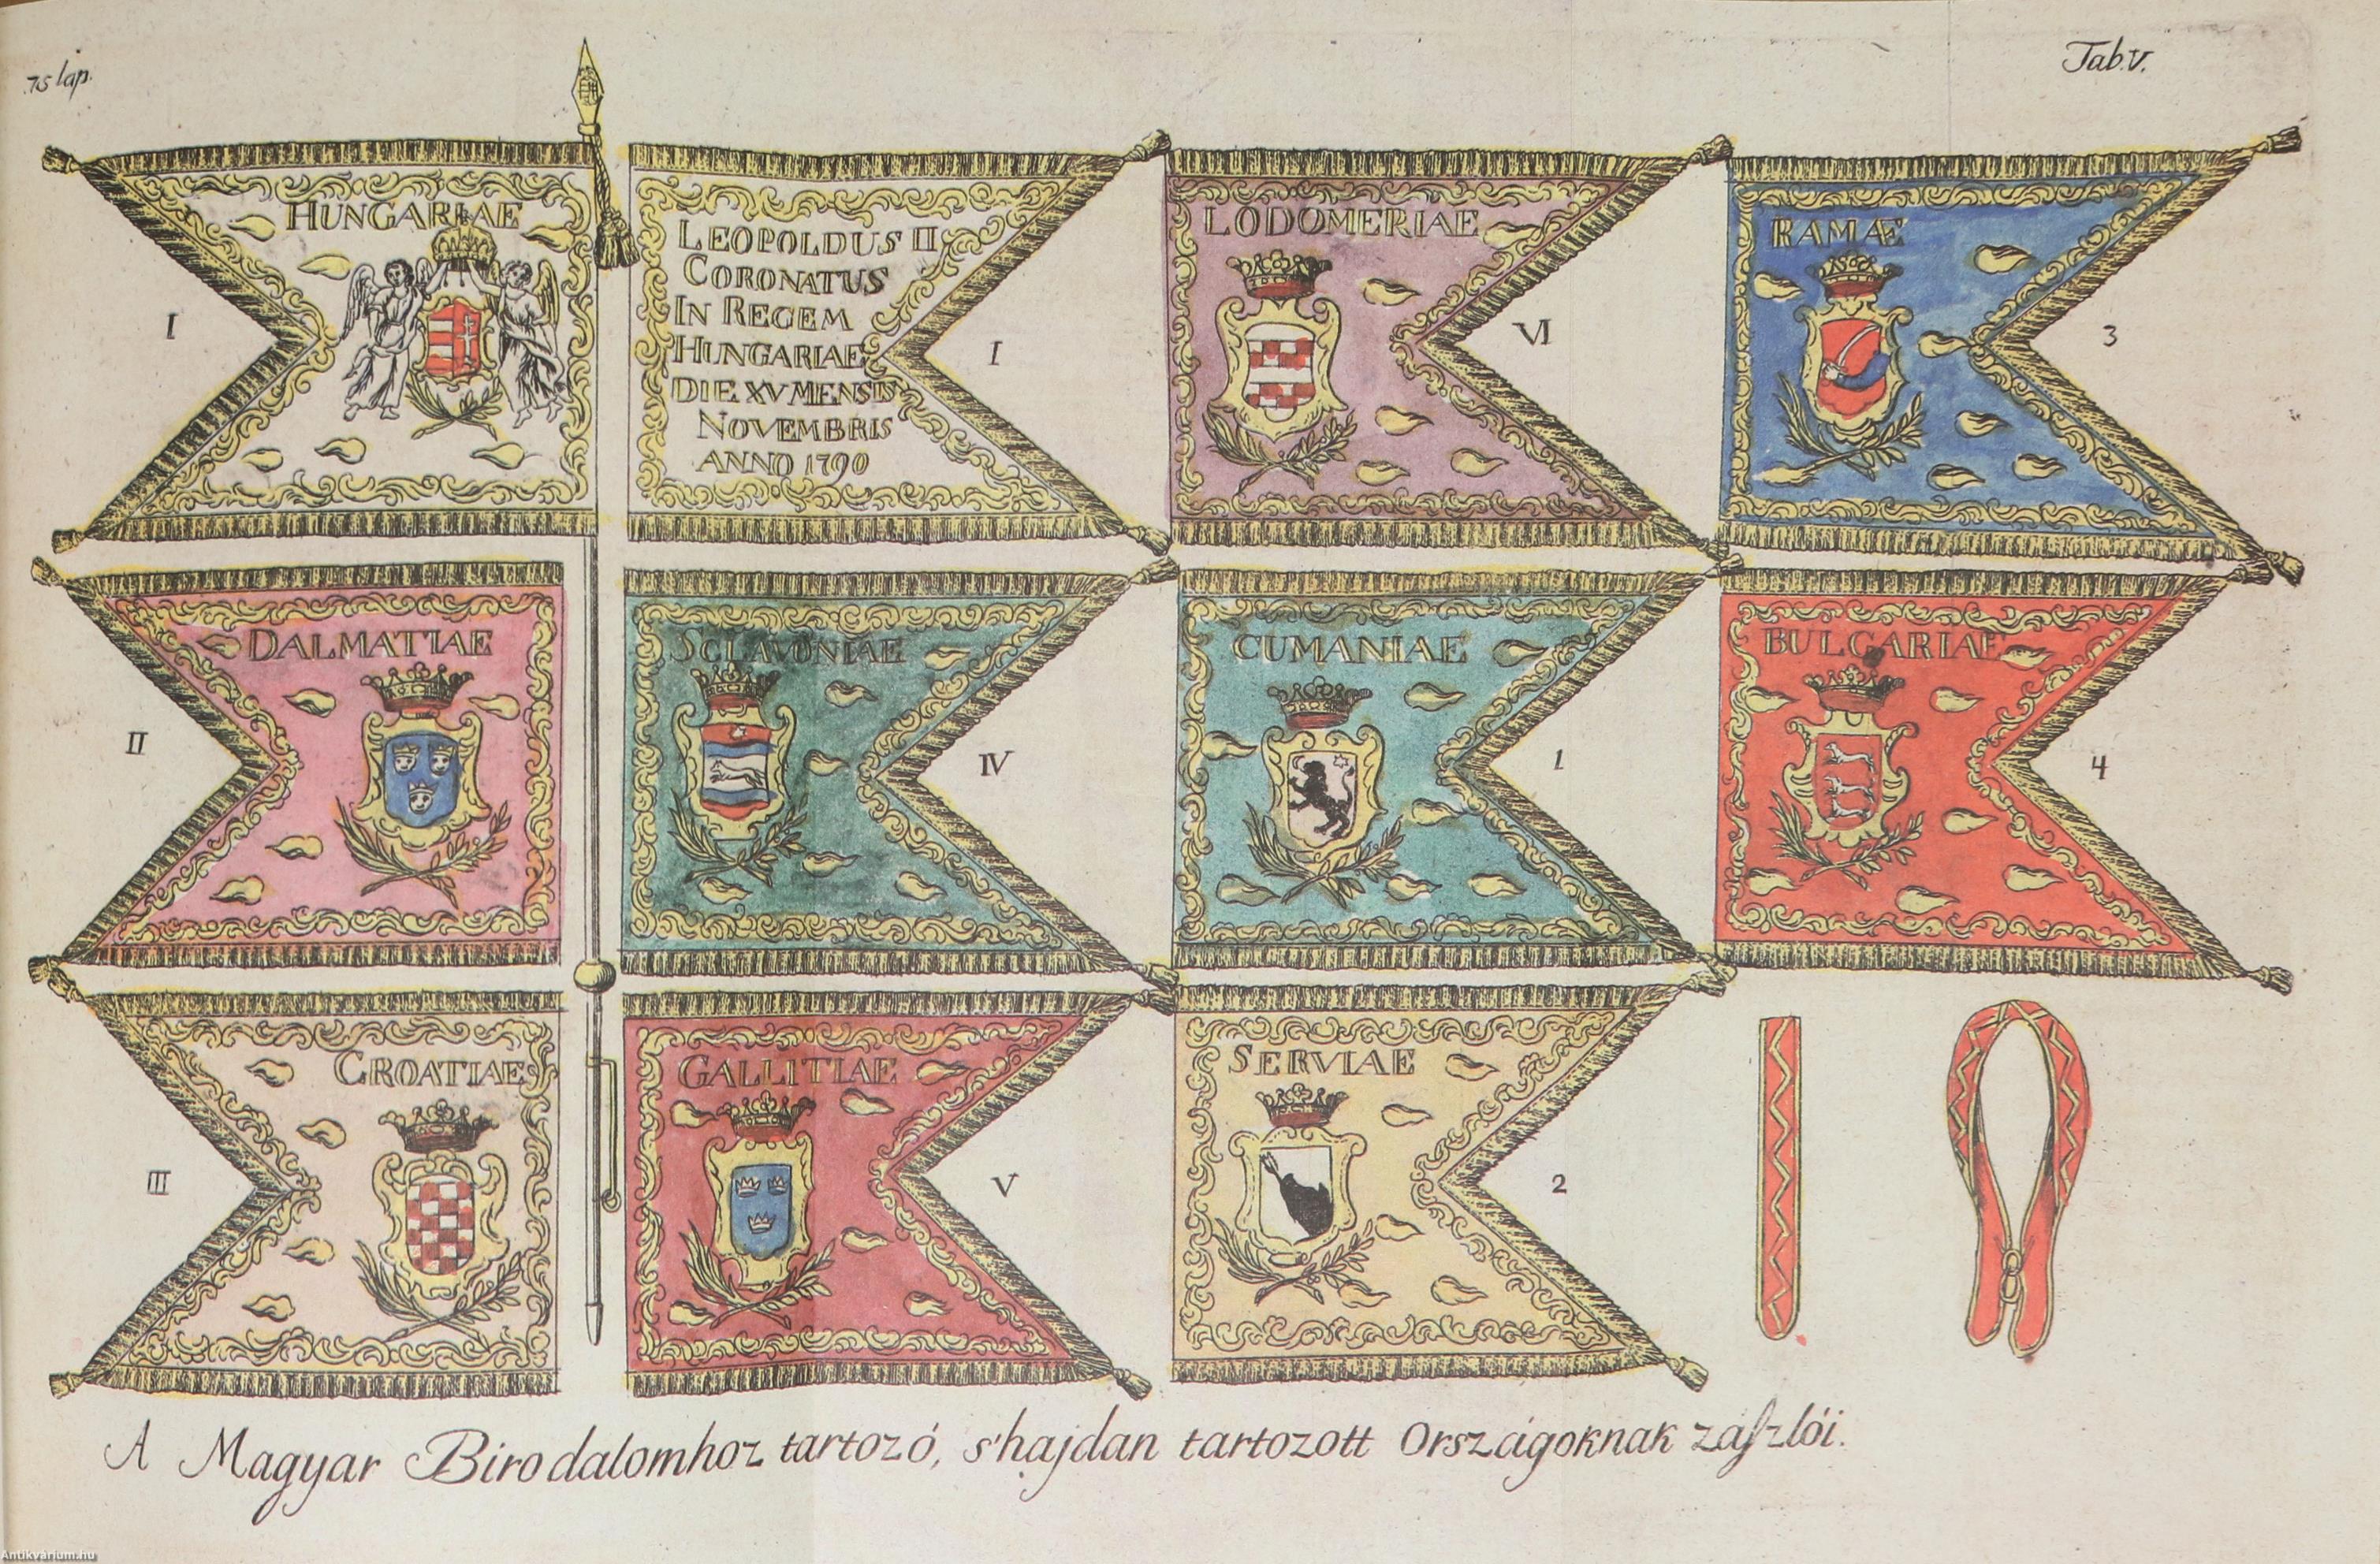 75 lap.
Tab. V.
HUNGARIAE
I
LEOPOLDUS II
CORONATUS
IN REGEM
HUNGARIAE
DIE XV MENSIS
NOVEMBRIS
ANNO 1790
I
LODOMERIAE
VI
RAMÆ
3
DALMATIAE
II
SCLAVONIAE
IV
CUMANIAE
1
BULGARIAE
4
CROATIAE
III
GALLITIAE
V
SERVIAE
2
A Magyar Birodalomhoz tartozó, s'hajdan tartozott Országoknak zászlói.
Antikvárium.hu